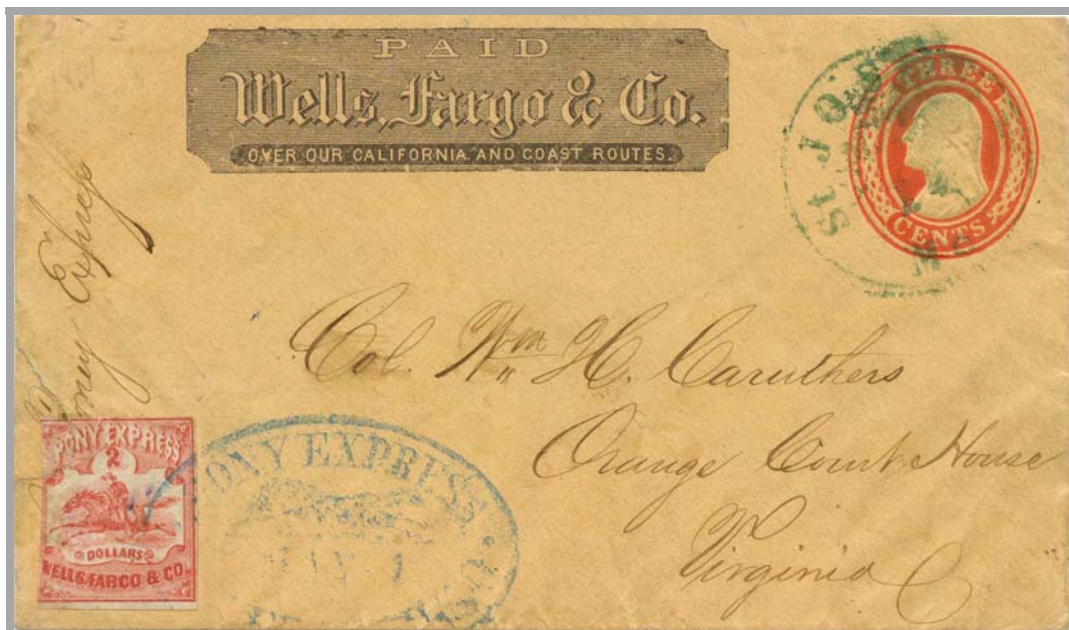 PAID
Wells, Fargo & Co.
OVER OUR CALIFORNIA AND COAST ROUTES.
THREE
CENTS
St JO
Pony Express
Col. Wm H. Caruthers
Orange Court House
Virginia
PONY EXPRESS
2
DOLLARS
WELLS, FARGO & CO.
PONY EXPRESS
MAY 1